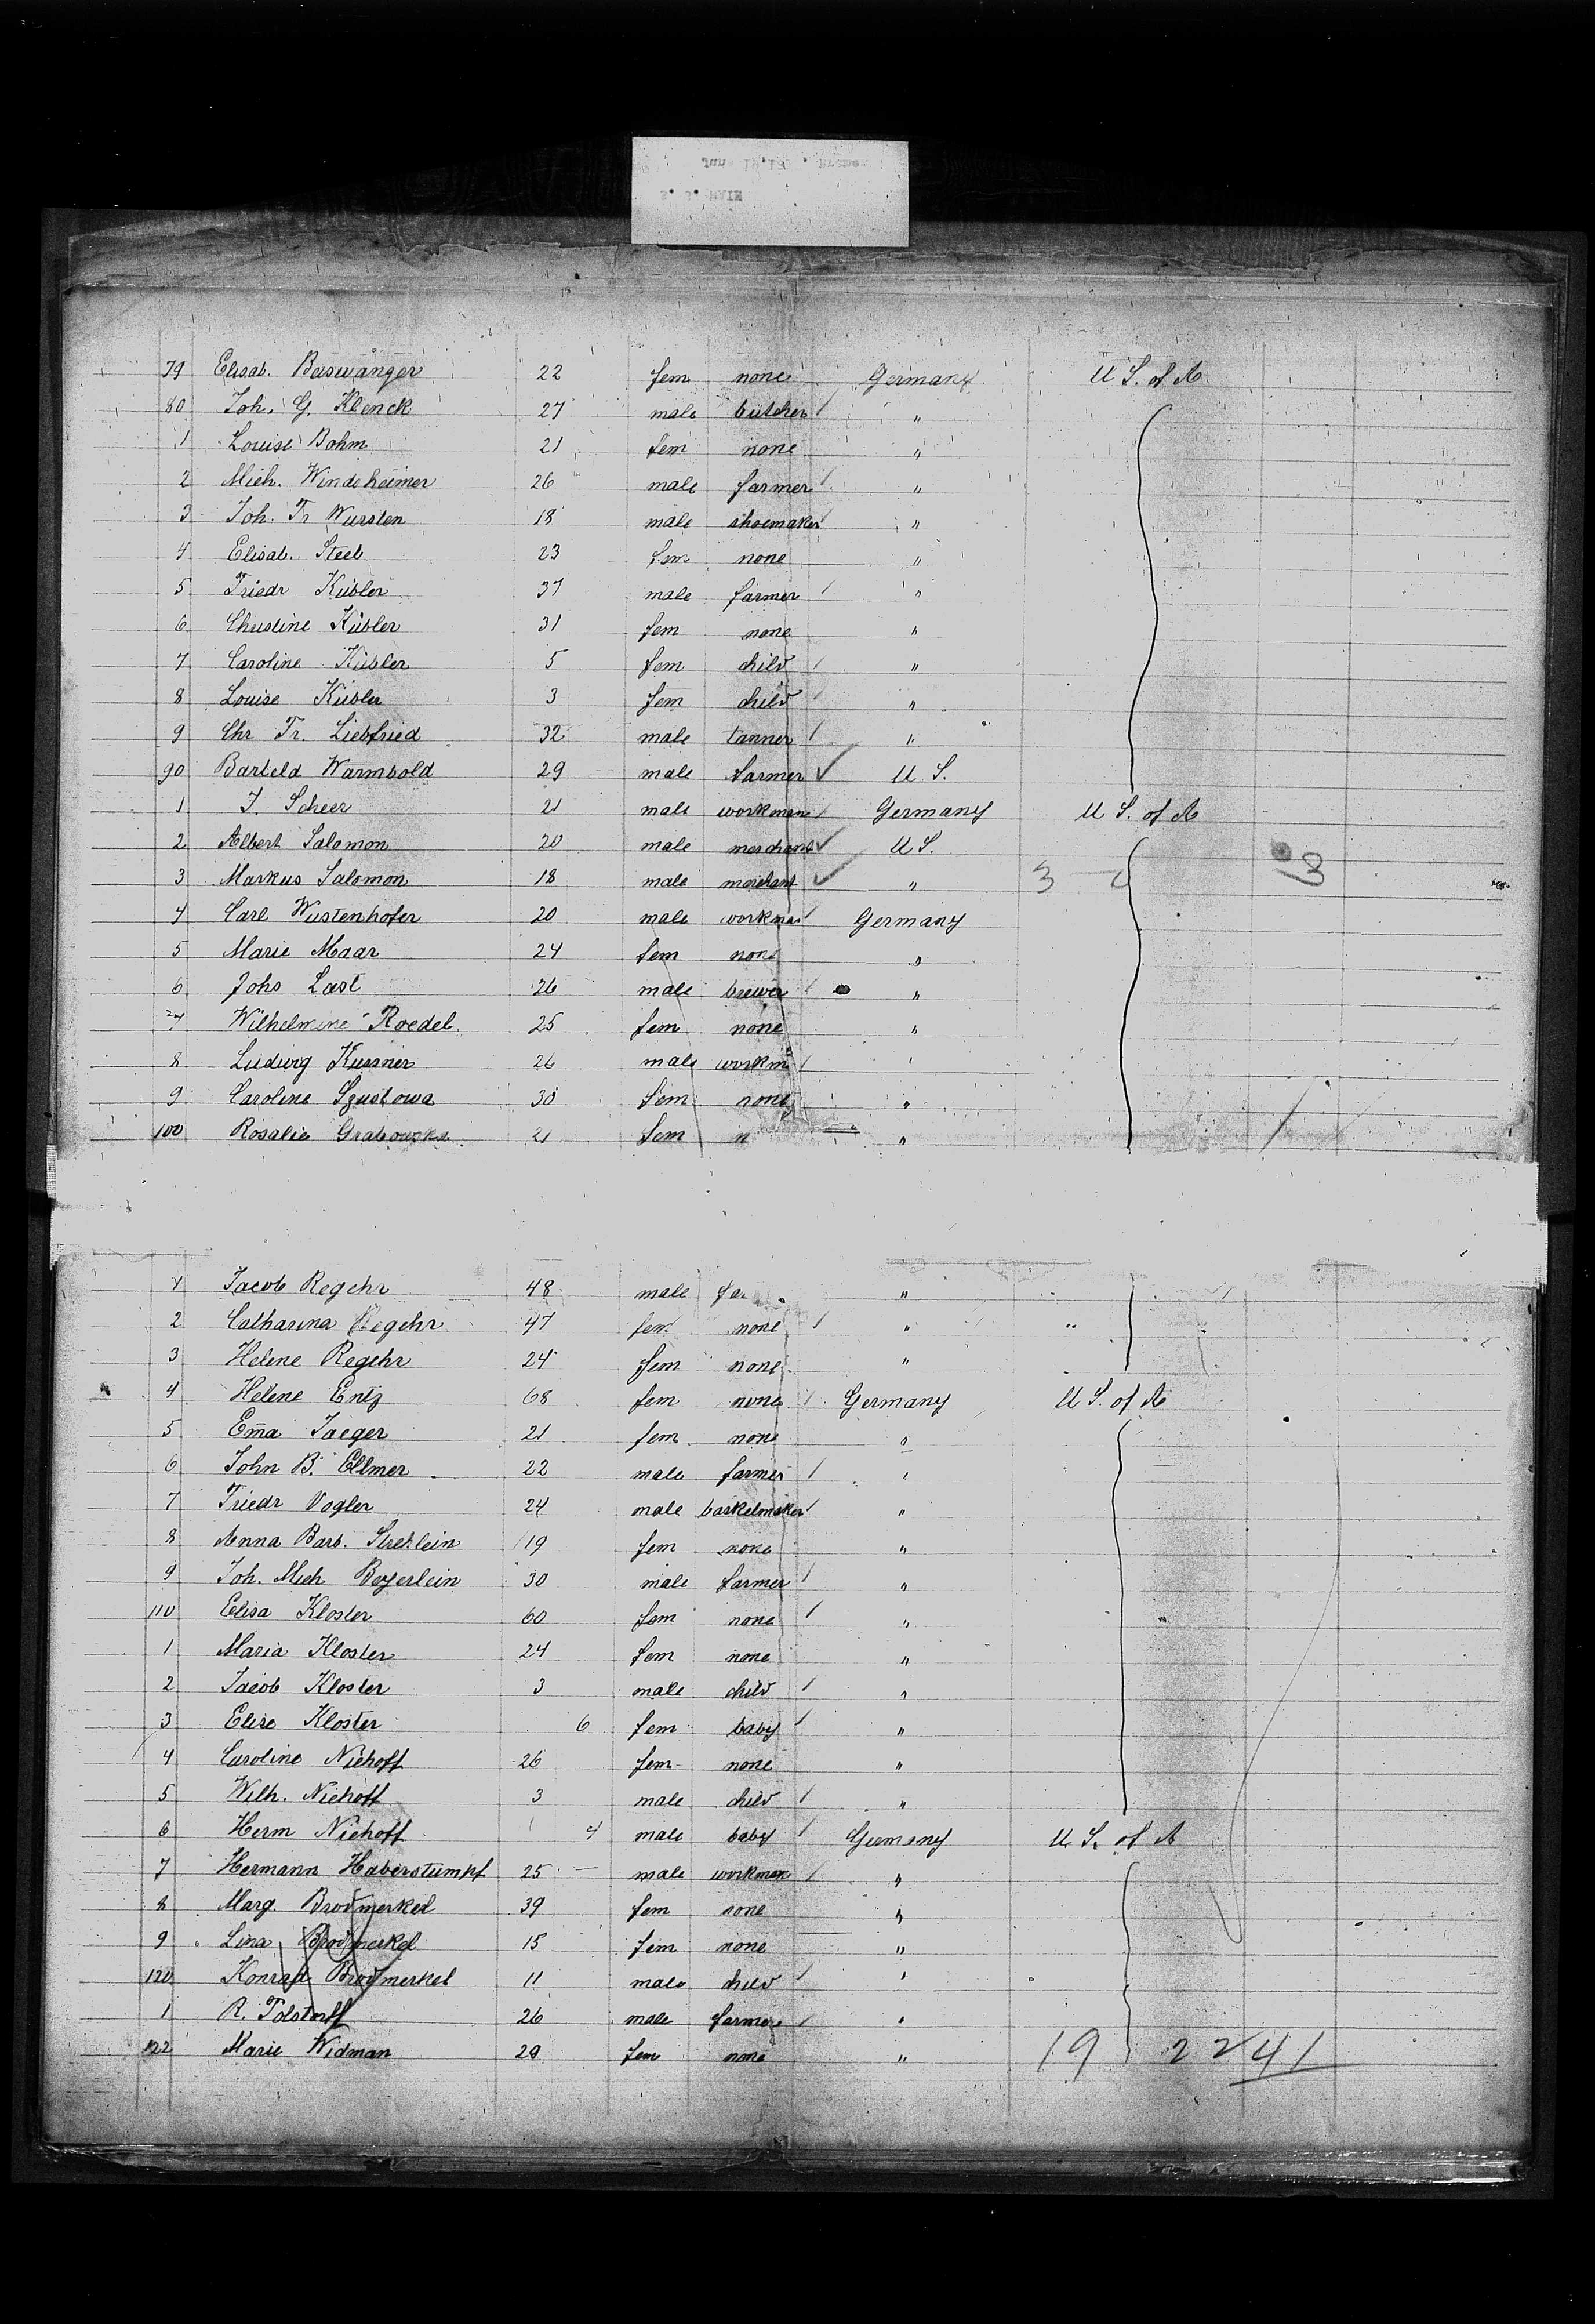 79 Elisab. Baswanger 22 fem none Germany U S. of A
80 Joh. G. Klenck 27 male butcher "
1 Louise Bohm 21 fem none "
2 Mich. Windsheimer 26 male farmer "
3 Joh. Fr Wursten 18 male shoemaker "
4 Elisab. Steeb 23 fem none "
5 Friedr Kübler 37 male farmer "
6 Christine Kübler 31 fem none "
7 Caroline Kübler 5 fem child "
8 Louise Kübler 3 fem child "
9 Chr Fr. Liebfried 32 male tanner "
90 Barteld Warmbold 29 male farmer U S.
1 J. Scheer 21 male workman Germany U S. of A
2 Albert Salomon 20 male merchant U S.
3 Markus Salomon 18 male merchant " 3
4 Carl Wustenhofer 20 male workman Germany
5 Marie Maar 24 fem none "
6 Johs Last 26 male brewer "
7 Wilhelmine Roedel 25 fem none "
8 Ludwig Kussner 26 male workm "
9 Caroline Szustowa 30 fem none "
100 Rosalie Grabowska 21 fem n "
1 Jacob Regehr 48 male fa "
2 Catharina Regehr 47 fem none "
3 Helene Regehr 24 fem none "
4 Helene Entz 68 fem none Germany U S. of A
5 Em̄a Jaeger 21 fem none "
6 John B. Ellmer 22 male farmer "
7 Friedr Vogler 24 male basketmaker "
8 Anna Barb. Strehlein 19 fem none "
9 Joh. Mich Beyerlein 30 male farmer "
110 Elisa Kloster 60 fem none "
1 Maria Kloster 24 fem none "
2 Jacob Kloster 3 male child "
3 Elise Kloster 6 fem baby "
4 Caroline Niehoff 26 fem none "
5 Wilh. Niehoff 3 male child "
6 Herm Niehoff 4 male baby Germany U. S. of A
7 Hermann Haberstumpf 25 male workman "
8 Marg. Brodmerkel 39 fem none "
9 Lina Brodmerkel 15 fem none "
120 Konrad Brodmerkel 11 male child "
1 R. Tolstorff 26 male farmer "
122 Marie Widman 29 fem none " 19 22 41